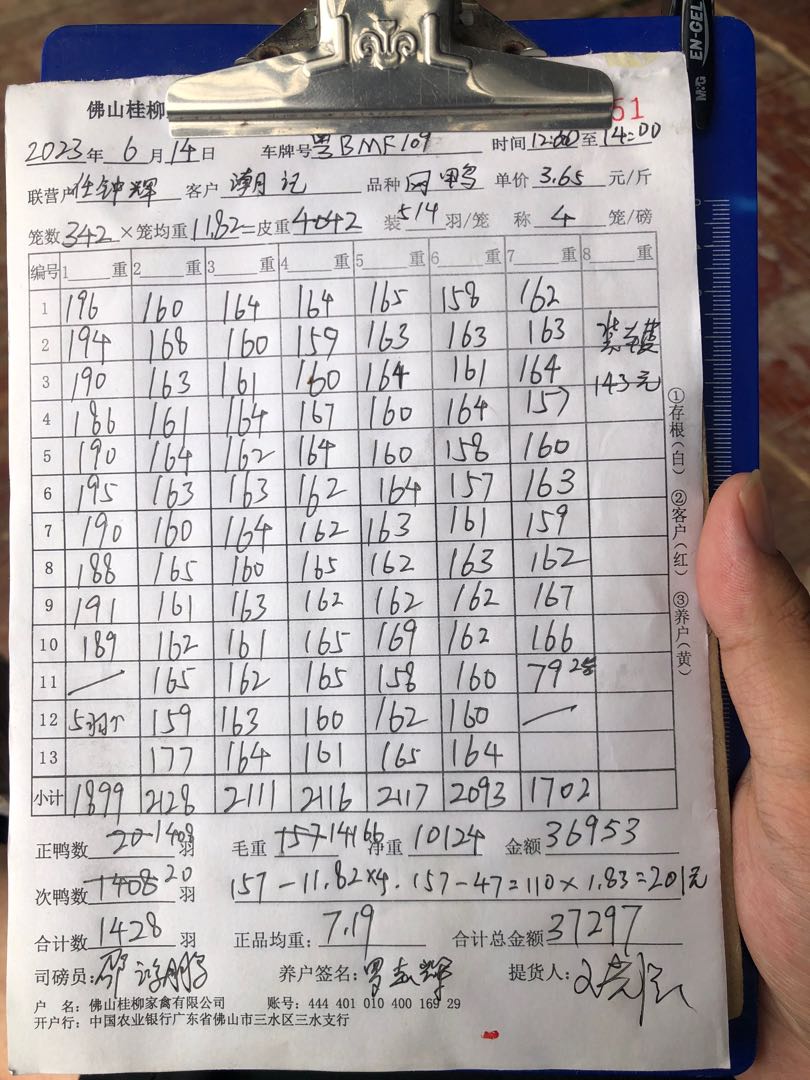 佛山桂柳 51
2023年6月14日 车牌号粤BMF109 时间12:00至14:00
联营户任钟辉 客户潮记 品种 单价3.65元/斤
笼数342×笼均重11.82=皮重4042 装5/4羽/笼 称4笼/磅
编号 1重 2重 3重 4重 5重 6重 7重 8重
1 196 160 164 164 165 158 162
2 194 168 160 159 163 163 163
3 190 163 161 160 164 161 164 143元
4 186 161 164 167 160 164 157
5 190 164 162 164 160 158 160
6 195 163 163 162 164 157 163
7 190 160 164 162 163 161 159
8 188 165 160 165 162 163 162
9 191 161 163 162 162 162 167
10 189 162 161 165 169 162 166
11 — 165 162 165 158 160 79
12 5羽个 159 163 160 162 160 —
13 177 164 161 165 164
小计 1899 2128 2111 2116 2117 2093 1702
正鸭数 20 1408羽 毛重 157 14166 净重 10124 金额 36953
次鸭数 1408 20羽 157-11.82×4. 157-47=110×1.83=201元
合计数 1428羽 正品均重:7.19 合计总金额37297
司磅员: 养户签名: 提货人:
户 名:佛山桂柳家禽有限公司 账号:444 401 010 400 169 29
开户行:中国农业银行广东省佛山市三水区三水支行
①存根(白) ②客户(红) ③养户(黄)
M&G EN-GEL